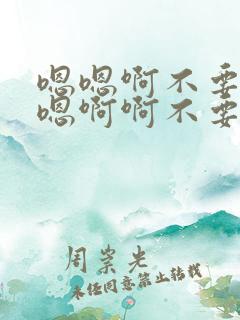 嗯嗯啊不要
嗯啊啊不要
周崇光
未经同意禁止转载